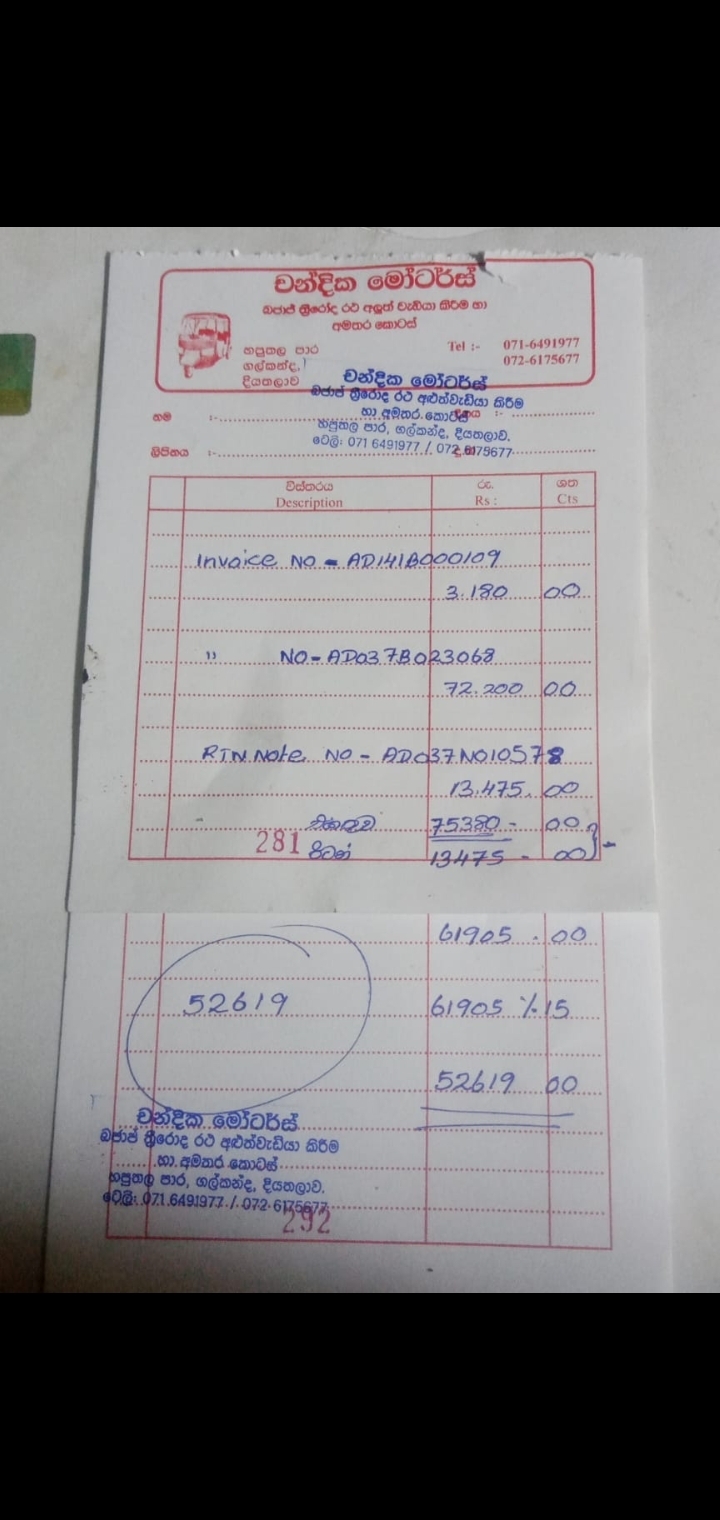 චන්දික මෝටර්ස්
බජාජ් ත්‍රීරෝද රථ අලුත් වැඩියා කිරීම හා
අමතර කොටස්
හපුතල පාර
ගල්කන්ද,
දියතලාව
Tel :- 071-6491977
072-6175677
චන්දික මෝටර්ස්
බජාජ් ත්‍රීරොද රථ අළුත්වැඩියා කිරීම
හා අමතර කොටස්
හපුතල පාර, ගල්කන්ද, දියතලාව.
ටෙලි: 071 6491977 / 072 6175677
නම :-
ලිපිනය :-
විස්තරය රු. ශත
Description Rs : Cts
Invoice NO - AD141B000109
3.180 00
" NO - AD037B023068
72.200 00
RTN Note NO - AD037N010578
13.475. 00
එකතුව 75380 - 00
281
රිටන් 13475 - 00
61905 . 00
52619 61905 %15
52619 00
චන්දික මෝටර්ස්
බජාජ් ත්‍රීරොද රථ අළුත්වැඩියා කිරීම
හා අමතර කොටස්
හපුතල පාර, ගල්කන්ද, දියතලාව.
ටෙලි: 071 6491977 / 072 6175677
292